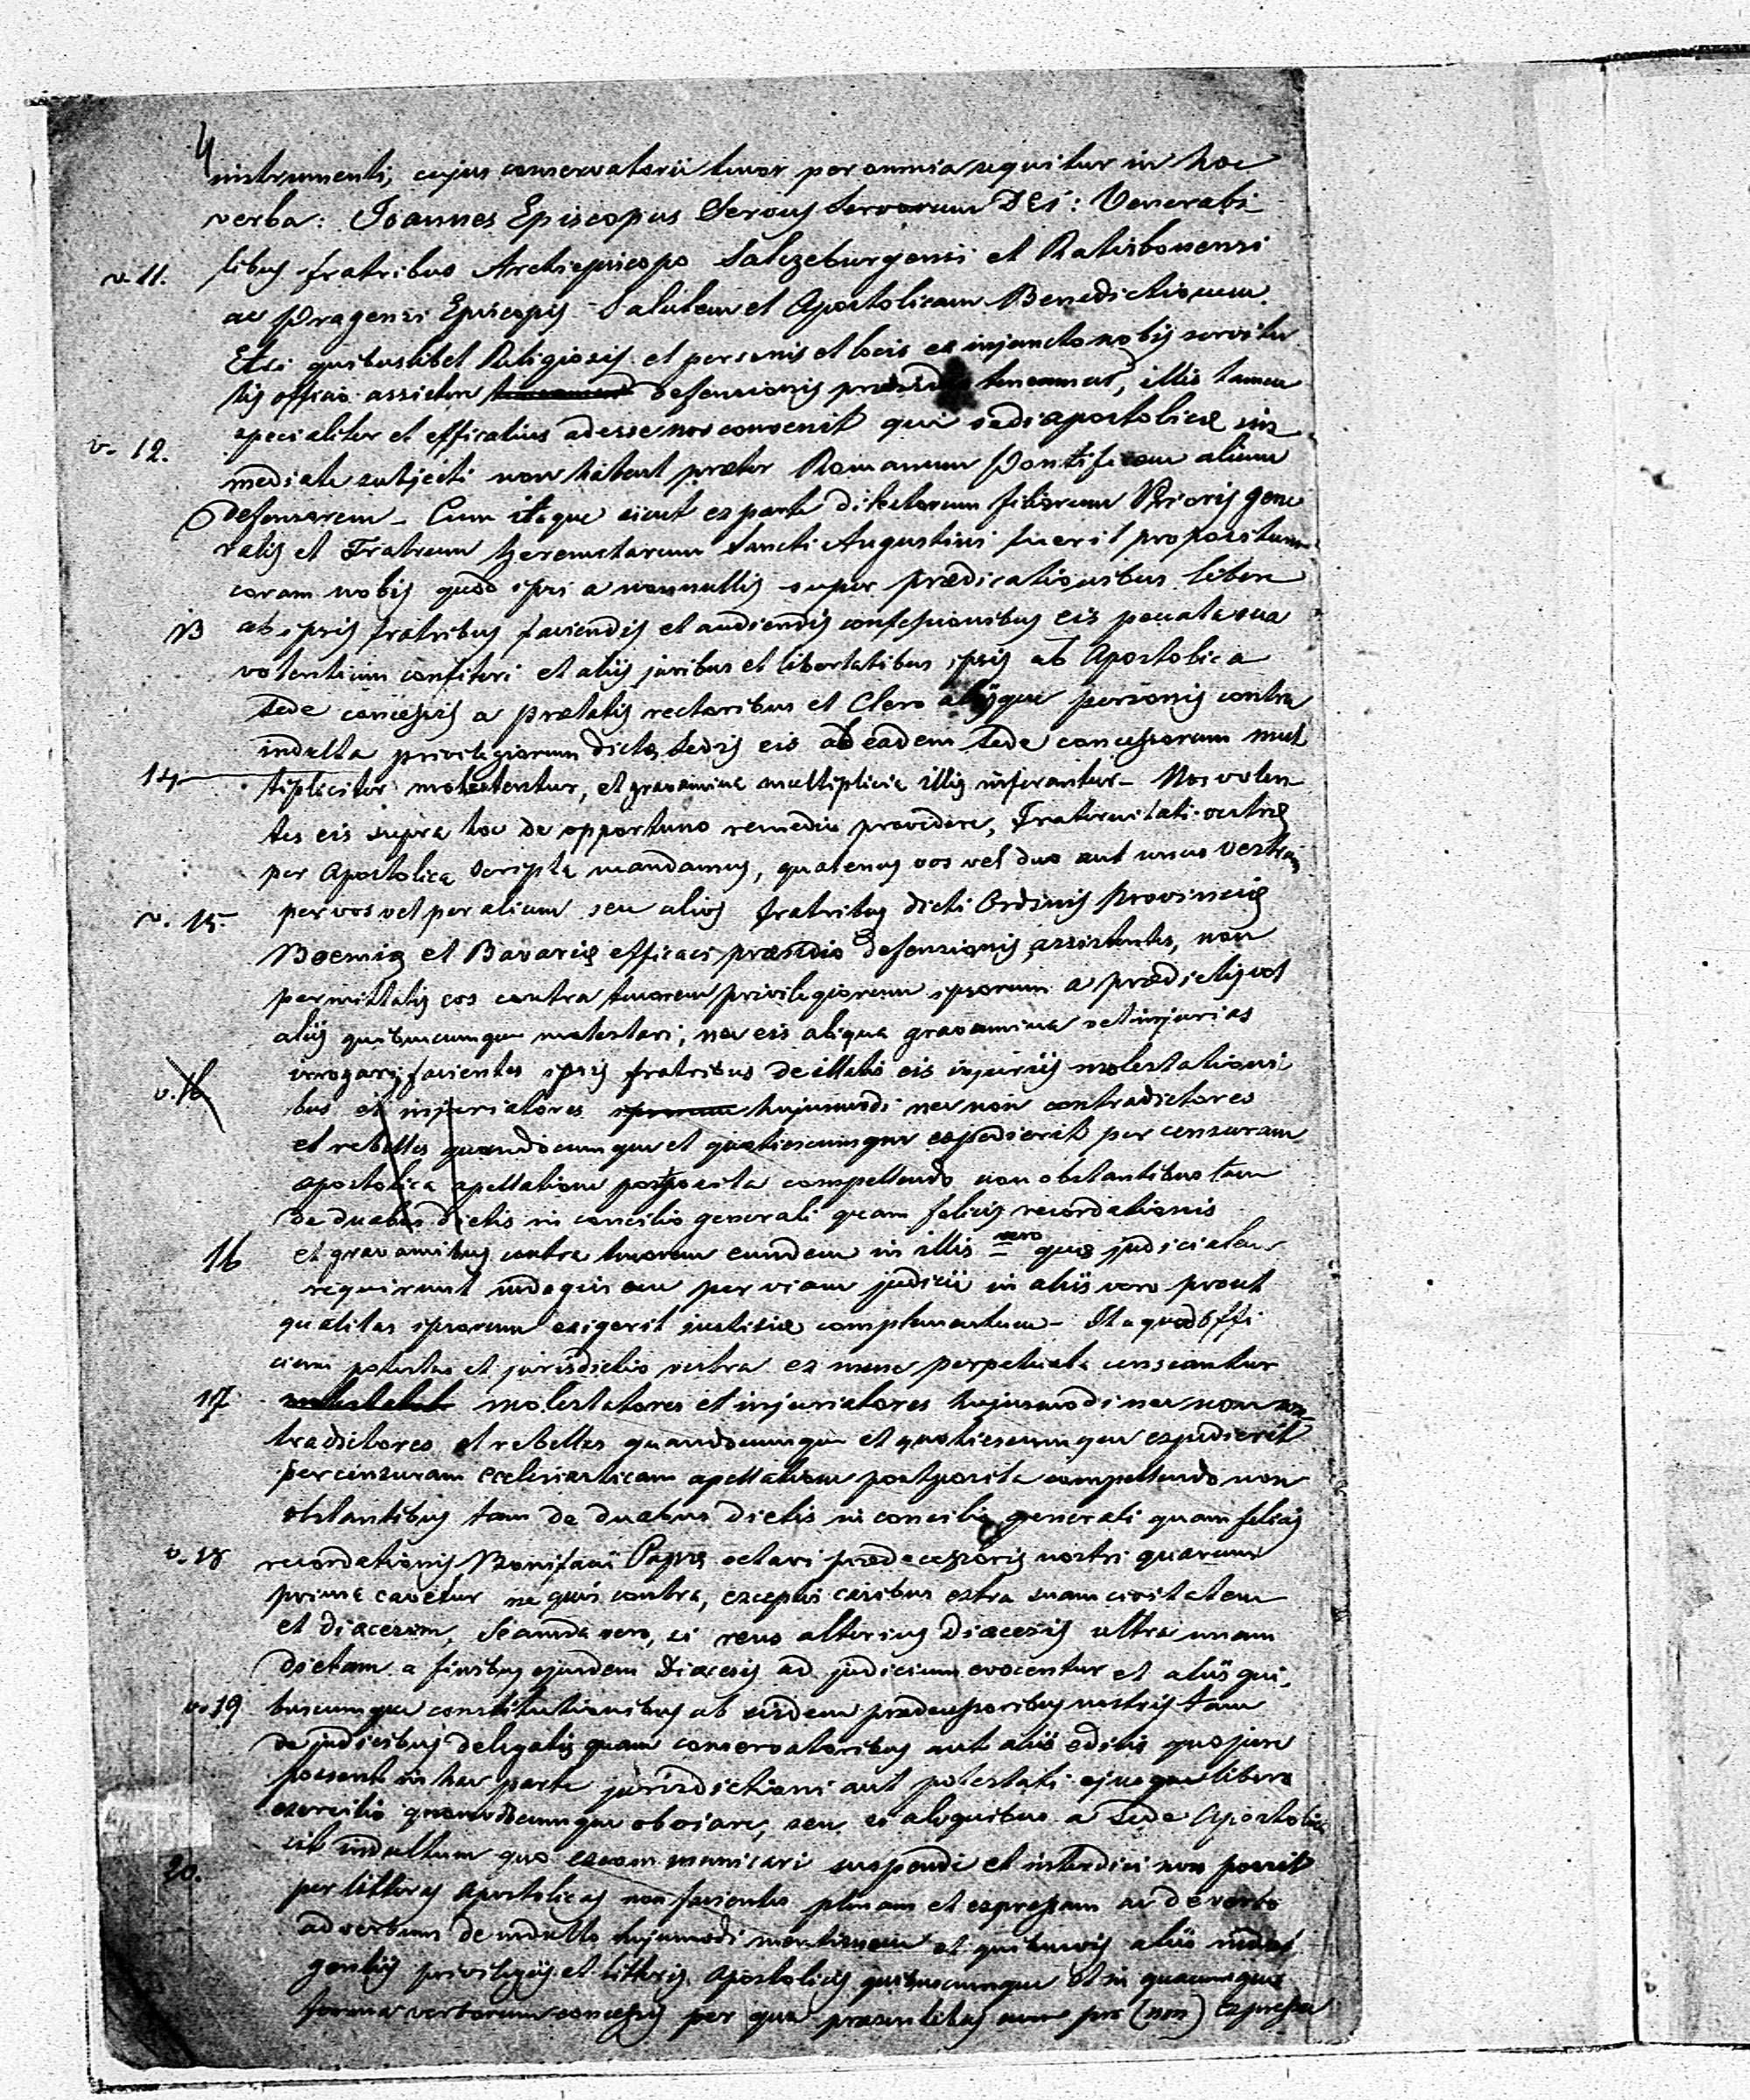 4
instrumenti, cujus conservatorii tenor per omnia sequitur in hoc
verba: Joannes Episcopus Servus Servorum DEi: Venerabi
v. 11. libus fratribus Archiepiscopo Salczeburgensi et Ratisbonensi
ac Pragensi Episcopis Salutem et Apostolicam Benedictionem.
Etsi quibuslibet Religiosis et personis et locis ex injuncto nobis servitu
tis officio assistere defensionis præsidio teneamur, illis tamen
specialiter et efficatius adesse nos convenit qui sedi apostolicæ im
v. 12. mediate subjecti non habent præter Romanum Pontificem alium
defensorem - Cum itaque sicut ex parte dilectorum filiorum Prioris gene
ralis et Fratrum heremitarum Sancti Augustini fuerit propositum
coram nobis quod ipsi a nonnullis super prædicationibus libere
13 ab ipsis fratribus faciendis et audiendis confessionibus eis peccata sua
volentium confiteri et aliis juribus et libertatibus ipsis ab Apostolica
Sede concessis a prælatis rectoribus et Clero aliisque personis contra
indulta privilegiorum dictæ Sedis eis ab eadem Sede concessorum mul
14 tipliciter molestentur, et gravamina multiplicia illis inferantur - Nos volen
tes eis supra hoc de opportuno remedio providere, Fraternitati vestræ
per Apostolica scripta mandamus, quatenus vos vel duo aut unus vestrum
v. 15. per vos vel per alium seu alios fratribus dicti Ordinis Provinciæ
Boemiæ et Bavariæ efficaci præsidio defensionis assistentes, non
permittatis eos contra tenorem privilegiorum ipsorum a prædictis vel
aliis quibuscumque molestari, nec eis aliqua gravamina vel injurias
v. 16 irrogari, facientes ipsis fratribus de illatis eis injuriis molestationi
bus et injuriatores hujusmodi nec non contradictores
et rebelles quandocumque et quotiescumque expedierit per censuram
apostolica apellatione postposita compellendo non obstantibus tam
de duabus dictis in concilio generali quam felicis recordationis
16 et gravaminibus contra tenorem eundem in illis vero quæ judicialem
requirunt indaginem per viam judicii in aliis vero prout
qualitas ipsorum exigerit justitiæ complementum - Ita quod offi
cium potestas et jurisdictio vestra ex nunc perpetuata censeantur
17 molestatores et injuriatores hujusmodi nec non con-
tradictores et rebelles quandocumque et quotiescumque expedierit
per censuram ecclesiasticam apellatione postposita compellendo non
obstantibus tam de duabus dictis in concilio generali quam felicis
v. 18 recordationis Bonifacii Papæ octavi prædecessoris nostri quarum
prima cavetur ne quis contra, exceptis casibus extra suam civitatem
et diacesim, Secunda vero, ne reus alterius Diacesis ultra unam
dietam a finibus ejusdem Diacesis ad judicium evocentur et aliis qui,
v. 19 buscumque constitutionibus ab eisdem prædecessoribus nostris tam
de judicibus delegatis quam conservatoribus aut aliis editis quo jure
possent in hac parte jurisdictioni aut potestati ejusque libero
exercitio quomodocumque obviare, seu ex aliquibus a Sede Apostolica
20. sit indultum quo excommunicari suspendi et interdici non possit
per litteras Apostolicas non facientes plenam et expressam ac de verbo
ad verbum de indulto hujusmodi mentionem et quibusvis aliis indul
gentiis privilegiis et litteris Apostolicis quibuscumque et in quacumque
forma verborum concessis per quæ præsentibus non pro (non) expressa